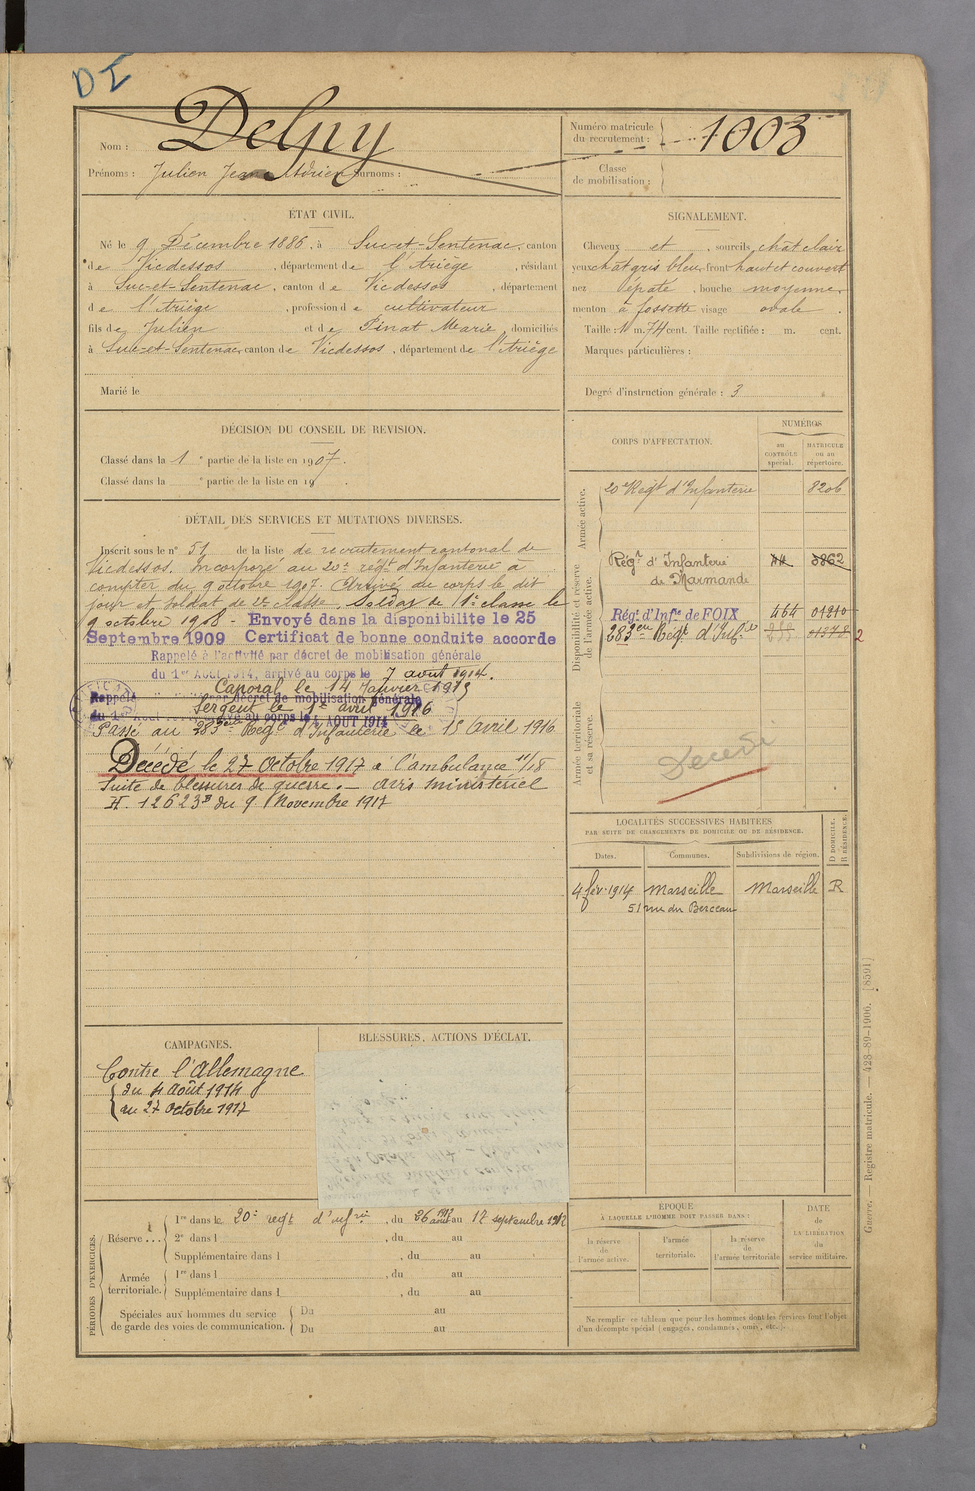 DI
Nom : Delpy
Prénoms : Julien Jean Adrien Surnoms :
Numéro matricule du recrutement : 1003
Classe de mobilisation :
ÉTAT CIVIL.
Né le 9 Décembre 1886, à Suc-et-Sentenac, canton
de Vicdessos, département de l'Ariège, résidant
à Suc-et-Sentenac, canton de Vicdessos, département
de l'Ariège, profession de cultivateur
fils de Julien et de Pinat Marie, domiciliés
à Suc-et-Sentenac, canton de Vicdessos, département de l'Ariège
Marié le
SIGNALEMENT.
Cheveux et, sourcils chat clair
yeux chat gris bleu, front haut et couvert
nez épaté, bouche moyenne,
menton à fossette visage ovale.
Taille : 1 m. 74 cent. Taille rectifiée : m. cent.
Marques particulières :
Degré d'instruction générale : 3
DÉCISION DU CONSEIL DE REVISION.
Classé dans la 1e partie de la liste en 1907.
Classé dans la e partie de la liste en 19
DÉTAIL DES SERVICES ET MUTATIONS DIVERSES.
Inscrit sous le n° 51 de la liste de recrutement cantonal de
Vicdessos. Incorporé au 20e régt d'Infanterie à
compter du 9 octobre 1907. Arrivé au corps le dit
jour et soldat de 2e classe. Soldat de 1e classe le
9 octobre 1908 - Envoyé dans la disponibilite le 25
Septembre 1909 Certificat de bonne conduite accorde
Rappelé à l'activité par décret de mobilisation générale
du 1er Août 1914, arrivé au corps le 7 août 1914.
Caporal le 14 Janvier 1915
Rappelé décret de mobilisation générale
Sergent le 1er avril 1916
au corps le 4 AOUT 1914
Passé au 283eme Régt d'Infanterie le 15 Avril 1916
Décédé le 27 Octobre 1917 à l'ambulance 11/18
Suite de blessures de guerre. — avis ministériel
H. 12623B du 9 Novembre 1917
CORPS D'AFFECTATION.
NUMÉROS
au CONTRÔLE spécial.
MATRICULE ou au répertoire.
Armée active.
20e Régt d'Infanterie 8206
Disponibilité et réserve de l'armée active.
Régt d'Infanterie de Marmande 3862
Régt d'Infie de FOIX 464 01910
283eme Régt d'Infie 2
Armée territoriale et sa réserve.
Décédé
LOCALITÉS SUCCESSIVES HABITÉES
PAR SUITE DE CHANGEMENTS DE DOMICILE OU DE RÉSIDENCE.
D DOMICILE. R RÉSIDENCE.
Dates. Communes. Subdivisions de région.
4 fév. 1914 Marseille Marseille R
51 rue du Berceau
CAMPAGNES.
Contre l'Allemagne
du 4 Août 1914
au 27 Octobre 1917
BLESSURES, ACTIONS D'ÉCLAT.
PÉRIODES D'EXERCICES.
Réserve ...
1re dans le 20e régt d'infrie, du 26 août 1912 au 17 septembre 1912
2e dans l , du au
Supplémentaire dans l , du au
Armée territoriale.
1re dans l , du au
Supplémentaire dans l , du au
Spéciales aux hommes du service de garde des voies de communication.
Du au
Du au
ÉPOQUE
À LAQUELLE L'HOMME DOIT PASSER DANS :
la réserve de l'armée active.
l'armée territoriale.
la réserve de l'armée territoriale
DATE de LA LIBÉRATION du service militaire.
Ne remplir ce tableau que pour les hommes dont les services font l'objet
d'un décompte spécial (engagés, condamnés, omis, etc.).
Guerre. — Registre matricule. — 428-89-1906. [8591]